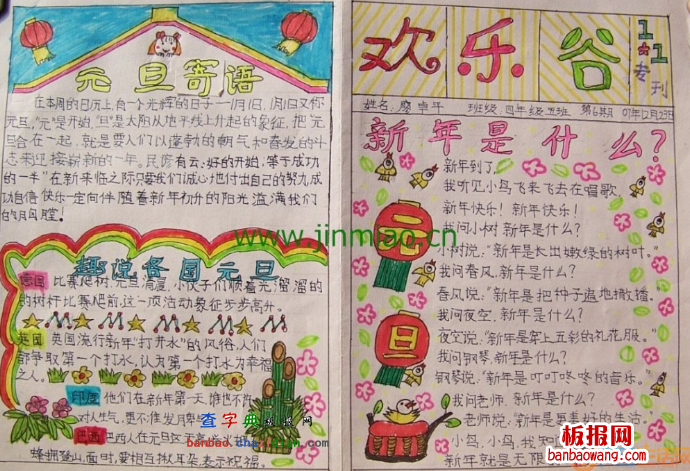 元旦寄语
在本周的日历上,有一个光辉的日子一1月1日,1月1日又称
元旦,"元"是开始,"旦"是太阳从地平线上升起的象征,把"元
旦合在一起,就是要人们以蓬勃的朝气和奋发的斗
志来迎接崭新的一年。民彦有云:好的开始,等于成功
的一半"在新来临之际只要我们诚心地付出自己的努力,成
功自信快乐一定向伴随着新年初升的阳光溢满我们
的胸膛。
趣说各国元旦
德国 比赛爬树,元旦清晨,小伙子们顺着光溜溜的
的树杆比赛爬前,这一项活动象征步步高升。
英国 英国流行新年"打井水"的风俗,人们
都争取第一个打水,认为第一个打水为幸福
之人。
印度 他们在新年第一天谁也不许
对人生气,更不准发脾
巴西 巴西人在元旦
蜂拥登山,面时,要相互揪耳朵,表示祝福。
欢乐谷
1·1
专刊
姓名: 班级 四年级五班 第6期 07年12月29日
新年是什么?
新年到了,
我听见小鸟飞来飞去在唱歌,
新年快乐!新年快乐!
我问小树,新年是什么?
小树说:"新年是长出嫩绿的树叶。"
我问春风,新年是什么?
春风说:"新年是把种子遍地撒播。
我问夜空,新年是什么?
夜空说:"新年是穿上五彩的礼花服。"
我问钢琴,新年是什么?
钢琴说:"新年是叮叮咚咚的音乐。"
我问老师,新年是什么?
老师说:新年是更美好的生活。
小鸟,小鸟,我知
新年就是无限
元
旦
www.jinmiao.cn
查字典
板报网
banbaowang.com